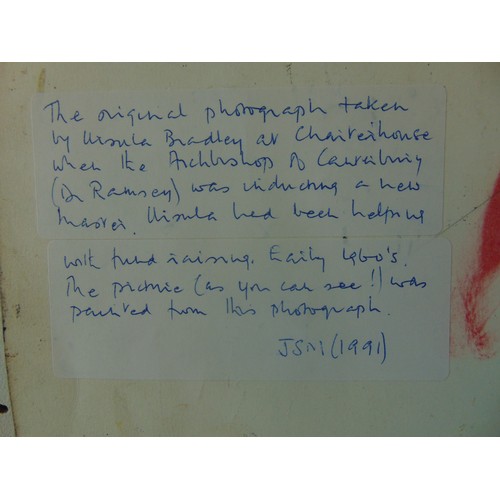 The original photograph taken
by Ursula Bradley at Charterhouse
when the Archbishop of Canterbury
(Dr Ramsey) was inducting a new
Master. Ursula had been helping
with fund raising. Early 1960's.
The picture (as you can see!) was
painted from this photograph.
JSM (1991)